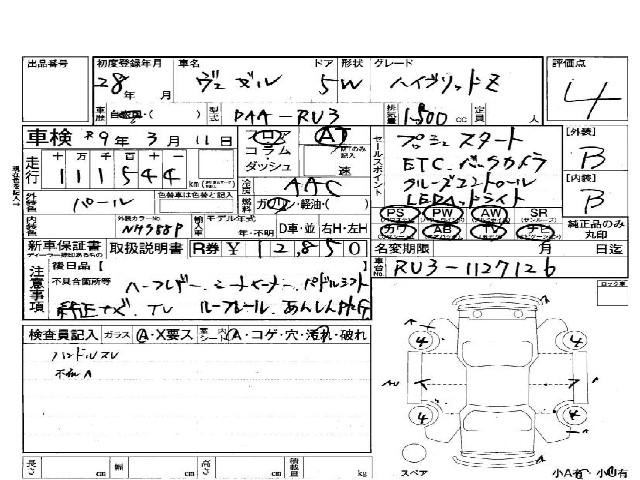 出品番号 初度登録年月 車名 ドア 形状 グレード 評価点
28年 月 ヴェゼル 5 W ハイブリッドZ 4
車歴 自家用・( ) 型式 DAA-RU3 排気量 1500 cc 定員 人
車検 R9年 3月 11日 フロア AT
コラム
ダッシュ 速
走行 十万千百十一
111544 km
冷房 AAC
燃料 ガソリン・軽油・( )
外装色 パール 色替車は色替と記入
内装色 外装カラーNo NH788P 輸入車 モデル年式 年・不明 D車・並 右H・左H
セールスポイント プッシュスタート
ETC バックカメラ
クルーズコントロール
LEDヘッドライト
PS PW AW SR
カワ AB TV ナビ 純正品のみ丸印
[外装] B
[内装] B
新車保証書 取扱説明書 R券 ¥ 12,850
名変期限 月 日迄
車台No. RU3-1127126
注意事項 後日品【 】
不具合箇所等 ハーフレザー シートヒーター パドルシフト
純正ナビ、TV ルーフレール あんしんPKG
検査員記入 ガラス A・X要ス 室内シート A・コゲ・穴・汚れ・破れ
ハンドルスレ
ロック車
4 4
4 4
スペア
小A有 小U有
長さ cm 幅 cm 高さ cm 積載量 kg